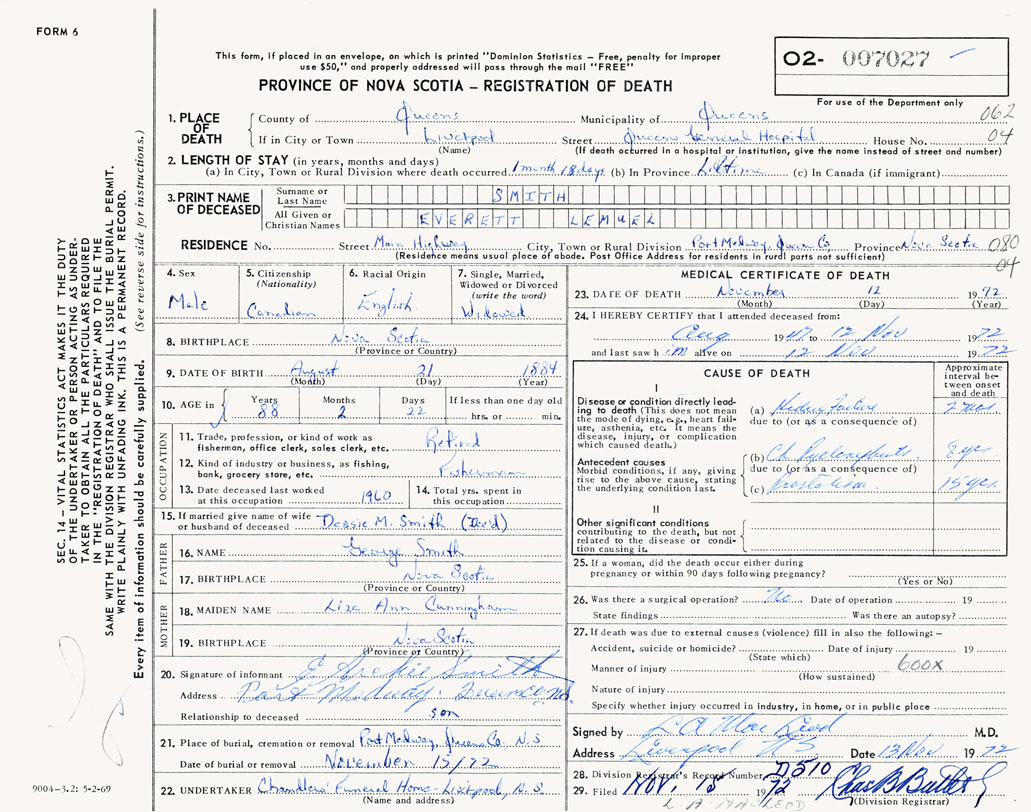 FORM 6
This form, if placed in an envelope, on which is printed "Dominion Statistics – Free, penalty for improper
use $50," and properly addressed will pass through the mail "FREE"
PROVINCE OF NOVA SCOTIA – REGISTRATION OF DEATH
O2- 007027
For use of the Department only
1. PLACE OF DEATH
County of Queens Municipality of Queens 062
If in City or Town Liverpool Street Queens General Hospital House No. 04
(Name) (If death occurred in a hospital or institution, give the name instead of street and number)
2. LENGTH OF STAY (in years, months and days)
(a) In City, Town or Rural Division where death occurred 1 month 18 days (b) In Province Lifetime (c) In Canada (if immigrant)
3. PRINT NAME OF DECEASED
Surname or Last Name SMITH
All Given or Christian Names EVERETT LEMUEL
RESIDENCE No. Street Main Highway City, Town or Rural Division Port Medway, Queens Co Province Nova Scotia 080
(Residence means usual place of abode. Post Office Address for residents in rural parts not sufficient) 04
4. Sex
Male
5. Citizenship
(Nationality)
Canadian
6. Racial Origin
English
7. Single, Married,
Widowed or Divorced
(write the word)
Widowed
8. BIRTHPLACE Nova Scotia
(Province or Country)
9. DATE OF BIRTH August 21 1884
(Month) (Day) (Year)
10. AGE in
Years Months Days If less than one day old
88 2 22 hrs. or min.
OCCUPATION
11. Trade, profession, or kind of work as
fisherman, office clerk, sales clerk, etc. Retired
12. Kind of industry or business, as fishing,
bank, grocery store, etc. Fisherman
13. Date deceased last worked
at this occupation 1960
14. Total yrs. spent in
this occupation
15. If married give name of wife
or husband of deceased Dessie M. Smith (Dec'd)
FATHER
16. NAME George Smith
17. BIRTHPLACE Nova Scotia
(Province or Country)
MOTHER
18. MAIDEN NAME Liza Ann Cunningham
19. BIRTHPLACE Nova Scotia
(Province or Country)
20. Signature of informant E Archie Smith
Address Port Medway. Queens Co N.S.
Relationship to deceased son
21. Place of burial, cremation or removal Port Medway, Queens Co, N.S
Date of burial or removal November 15/72
22. UNDERTAKER Chandlers' Funeral Home - Liverpool, N.S.
(Name and address)
MEDICAL CERTIFICATE OF DEATH
23. DATE OF DEATH November 12 1972
(Month) (Day) (Year)
24. I HEREBY CERTIFY that I attended deceased from:
Aug 1947 to 12 Nov 1972
and last saw him alive on 12 Nov 1972
CAUSE OF DEATH
Approximate
interval be-
tween onset
and death
I
Disease or condition directly lead-
ing to death (This does not mean
the mode of dying, e.g., heart fail-
ure, asthenia, etc. It means the
disease, injury, or complication
which caused death.)
(a) Kidney Failure 2 mos.
due to (or as a consequence of)
Antecedent causes
Morbid conditions, if any, giving
rise to the above cause, stating
the underlying condition last.
(b) Ch. Pyelonephritis 8 yrs
due to (or as a consequence of)
(c) Prostatism 15 yrs.
II
Other significant conditions
contributing to the death, but not
related to the disease or condi-
tion causing it.
25. If a woman, did the death occur either during
pregnancy or within 90 days following pregnancy?
(Yes or No)
26. Was there a surgical operation? No Date of operation 19
State findings Was there an autopsy?
27. If death was due to external causes (violence) fill in also the following: –
Accident, suicide or homicide? Date of injury 19
(State which)
Manner of injury 600X
(How sustained)
Nature of injury
Specify whether injury occurred in industry, in home, or in public place
Signed by L A MacLeod M.D.
Address Liverpool N S Date 13 Nov 1972
28. Division Registrar's Record Number D510
29. Filed NOV. 15 1972 Chas B Butler
(Division Registrar)
L. A. MACLEOD
SEC. 14 – VITAL STATISTICS ACT MAKES IT THE DUTY
OF THE UNDERTAKER OR PERSON ACTING AS UNDER-
TAKER TO OBTAIN ALL THE PARTICULARS REQUIRED
IN THE "REGISTRATION OF DEATH" AND TO FILE THE
SAME WITH THE DIVISION REGISTRAR WHO SHALL ISSUE THE BURIAL PERMIT.
WRITE PLAINLY WITH UNFADING INK. THIS IS A PERMANENT RECORD.
Every item of information should be carefully supplied. (See reverse side for instructions.)
9004-3.2: 5-2-69